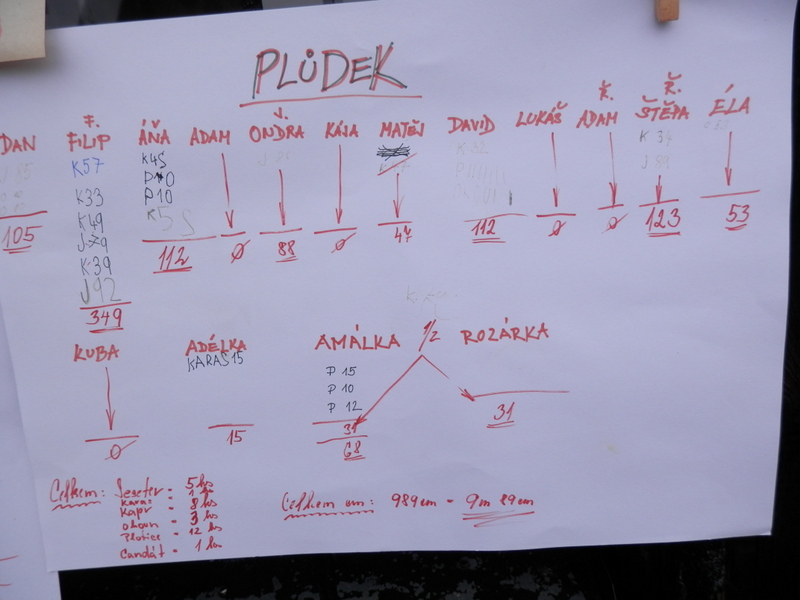 PLŮDEK
DAN
105
F. FILIP
K57
K33
K49
J79
K39
J92
349
ÁŇA
K45
P10
P10
K55
112
ADAM
0
V. ONDRA
88
KÁJA
0
MATĚJ
47
DAVID
112
LUKÁŠ
0
Ř. ADAM
0
Ř. ŠTĚPA
K 34
J 89
123
ÉLA
53
KUBA
0
ADÉLKA
KARAS 15
15
AMÁLKA
P 15
P 10
P 12
31
68
1/2
ROZÁRKA
31
Celkem: Jeseter - 5 ks
Karas - 1 ks
Kapr - 8 ks
okoun - 3 ks
Plotice - 12 ks
Candát - 1 ks
Celkem cm: 989 cm - 9m 89cm